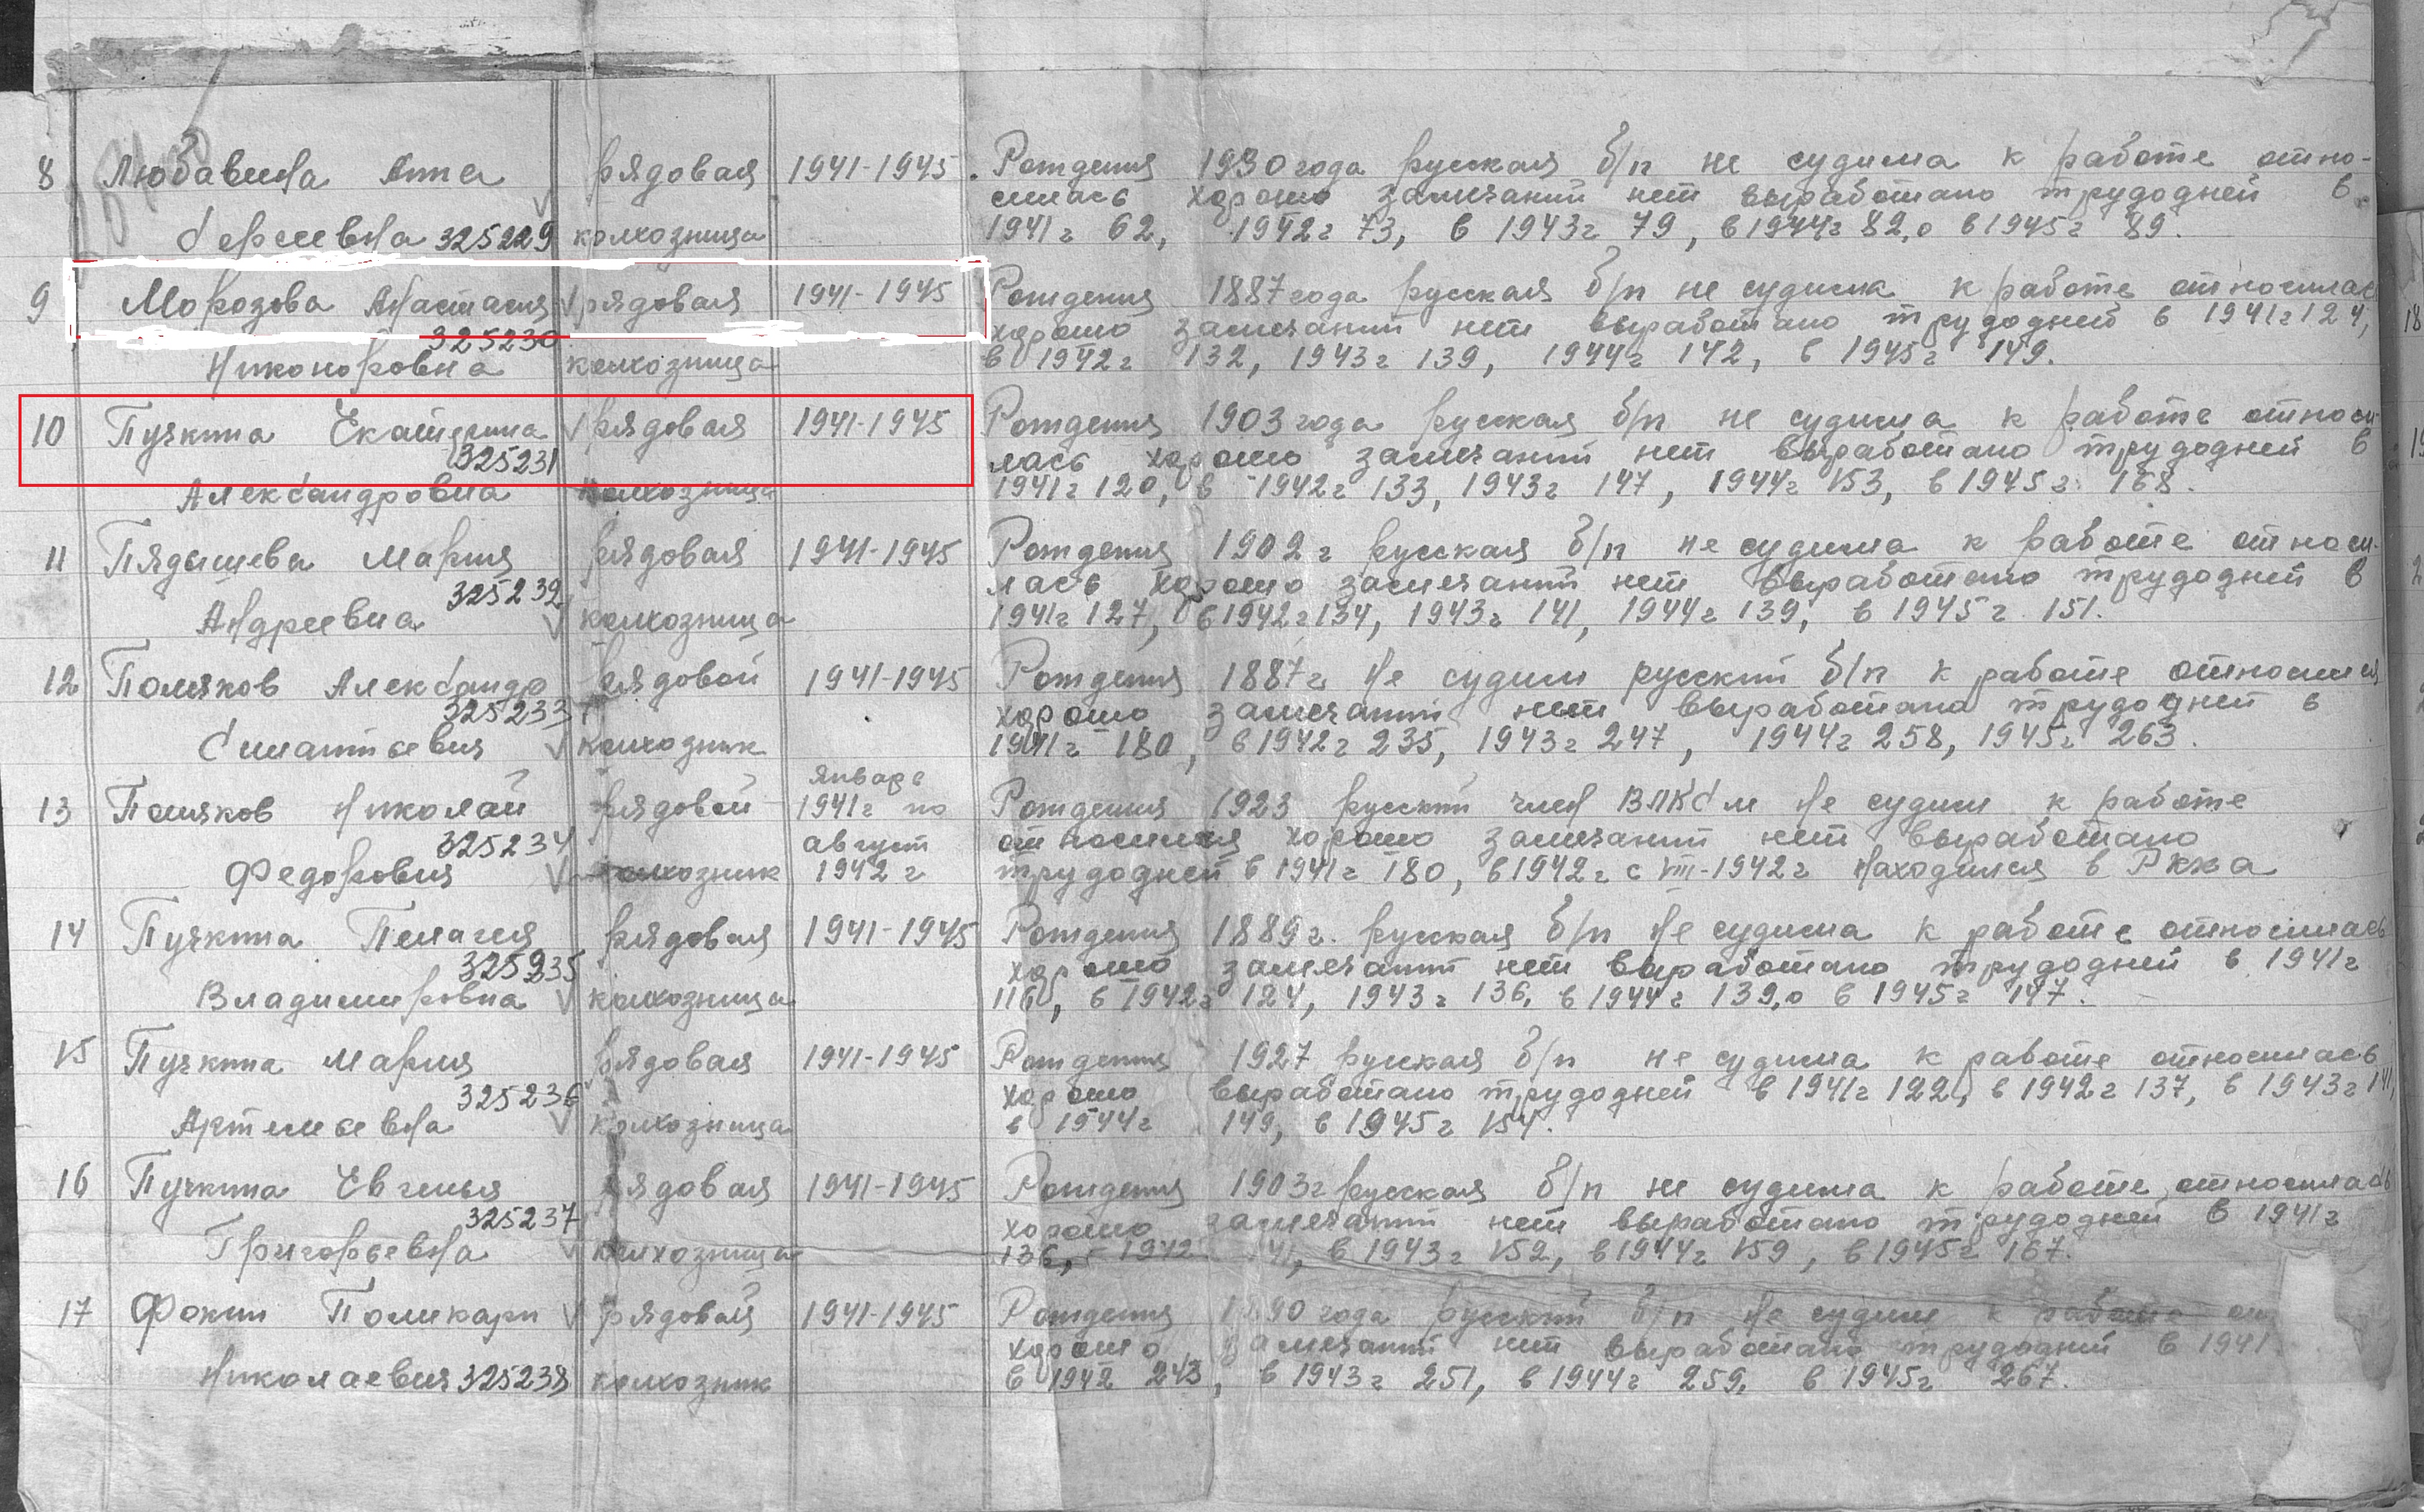 8 Любавина Анна рядовая 1941-1945 Рождения 1930 года русская б/п не судима к работе отно-
силась хорошо замечаний нет выработано трудодней в
Сергеевна 325229 колхозница 1941г 62, 1942г 73, в 1943г 79, в 1944г 82, в 1945г 89.
9 Морозова Анастасия рядовая 1941-1945 Рождения 1887 года русская б/п не судима к работе относилась
325230 хорошо замечаний нет выработано трудодней в 1941г 124,
Никоноровна колхозница в 1942г 132, 1943г 139, 1944г 142, в 1945г 149.
10 Пучкина Екатерина рядовая 1941-1945 Рождения 1903 года русская б/п не судима к работе относи-
325231 лась хорошо замечаний нет выработано трудодней в
Александровна колхозница 1941г 120, в 1942г 133, 1943г 147, 1944г 153, в 1945г 168.
11 Пядышева Мария рядовая 1941-1945 Рождения 1902г русская б/п не судима к работе относи-
325232 лась хорошо замечаний нет выработано трудодней в
Андреевна колхозница 1941г 127, в 1942г 134, 1943г 141, 1944г 139, в 1945г 151.
12 Поляков Александр рядовой 1941-1945 Рождения 1887г не судим русский б/п к работе относился
325233 хорошо замечаний нет выработано трудодней в
колхозник 1941г 180, в 1942г 235, 1943г 247, 1944г 258, 1945г 263.
январь
13 Поляков Николай рядовой 1941г по Рождения 1923 русский член ВЛКСМ не судим к работе
325234 август относился хорошо замечаний нет выработано
Федорович колхозник 1942г трудодней в 1941г 180, в 1942г с VIII-1942г находился в РККА
14 Пучкина Пелагея рядовая 1941-1945 Рождения 1889г. русская б/п не судима к работе относилась
325235 хорошо замечаний нет выработано трудодней в 1941г
Владимировна колхозница 116, в 1942г 124, 1943г 136, в 1944г 139, в 1945г 147.
15 Пучкина Мария рядовая 1941-1945 Рождения 1927 русская б/п не судима к работе относилась
325236 хорошо выработано трудодней в 1941г 122, в 1942г 137, в 1943г 141,
Артемьевна колхозница в 1944г 149, в 1945г 154.
16 Пучкина Евгенья рядовая 1941-1945 Рождения 1903г русская б/п не судима к работе относилась
325237 хорошо замечаний нет выработано трудодней в 1941г
Григорьевна колхозница 136, 1942 141, в 1943г 152, в 1944г 159, в 1945г 167.
17 Фокин Поликарп рядовой 1941-1945 Рождения 1890 года русский б/п не судим к работе от
хорошо замечаний нет выработано трудодней в 1941
Николаевич 325238 колхозник в 1942 243, в 1943г 251, в 1944г 259, в 1945г 267.